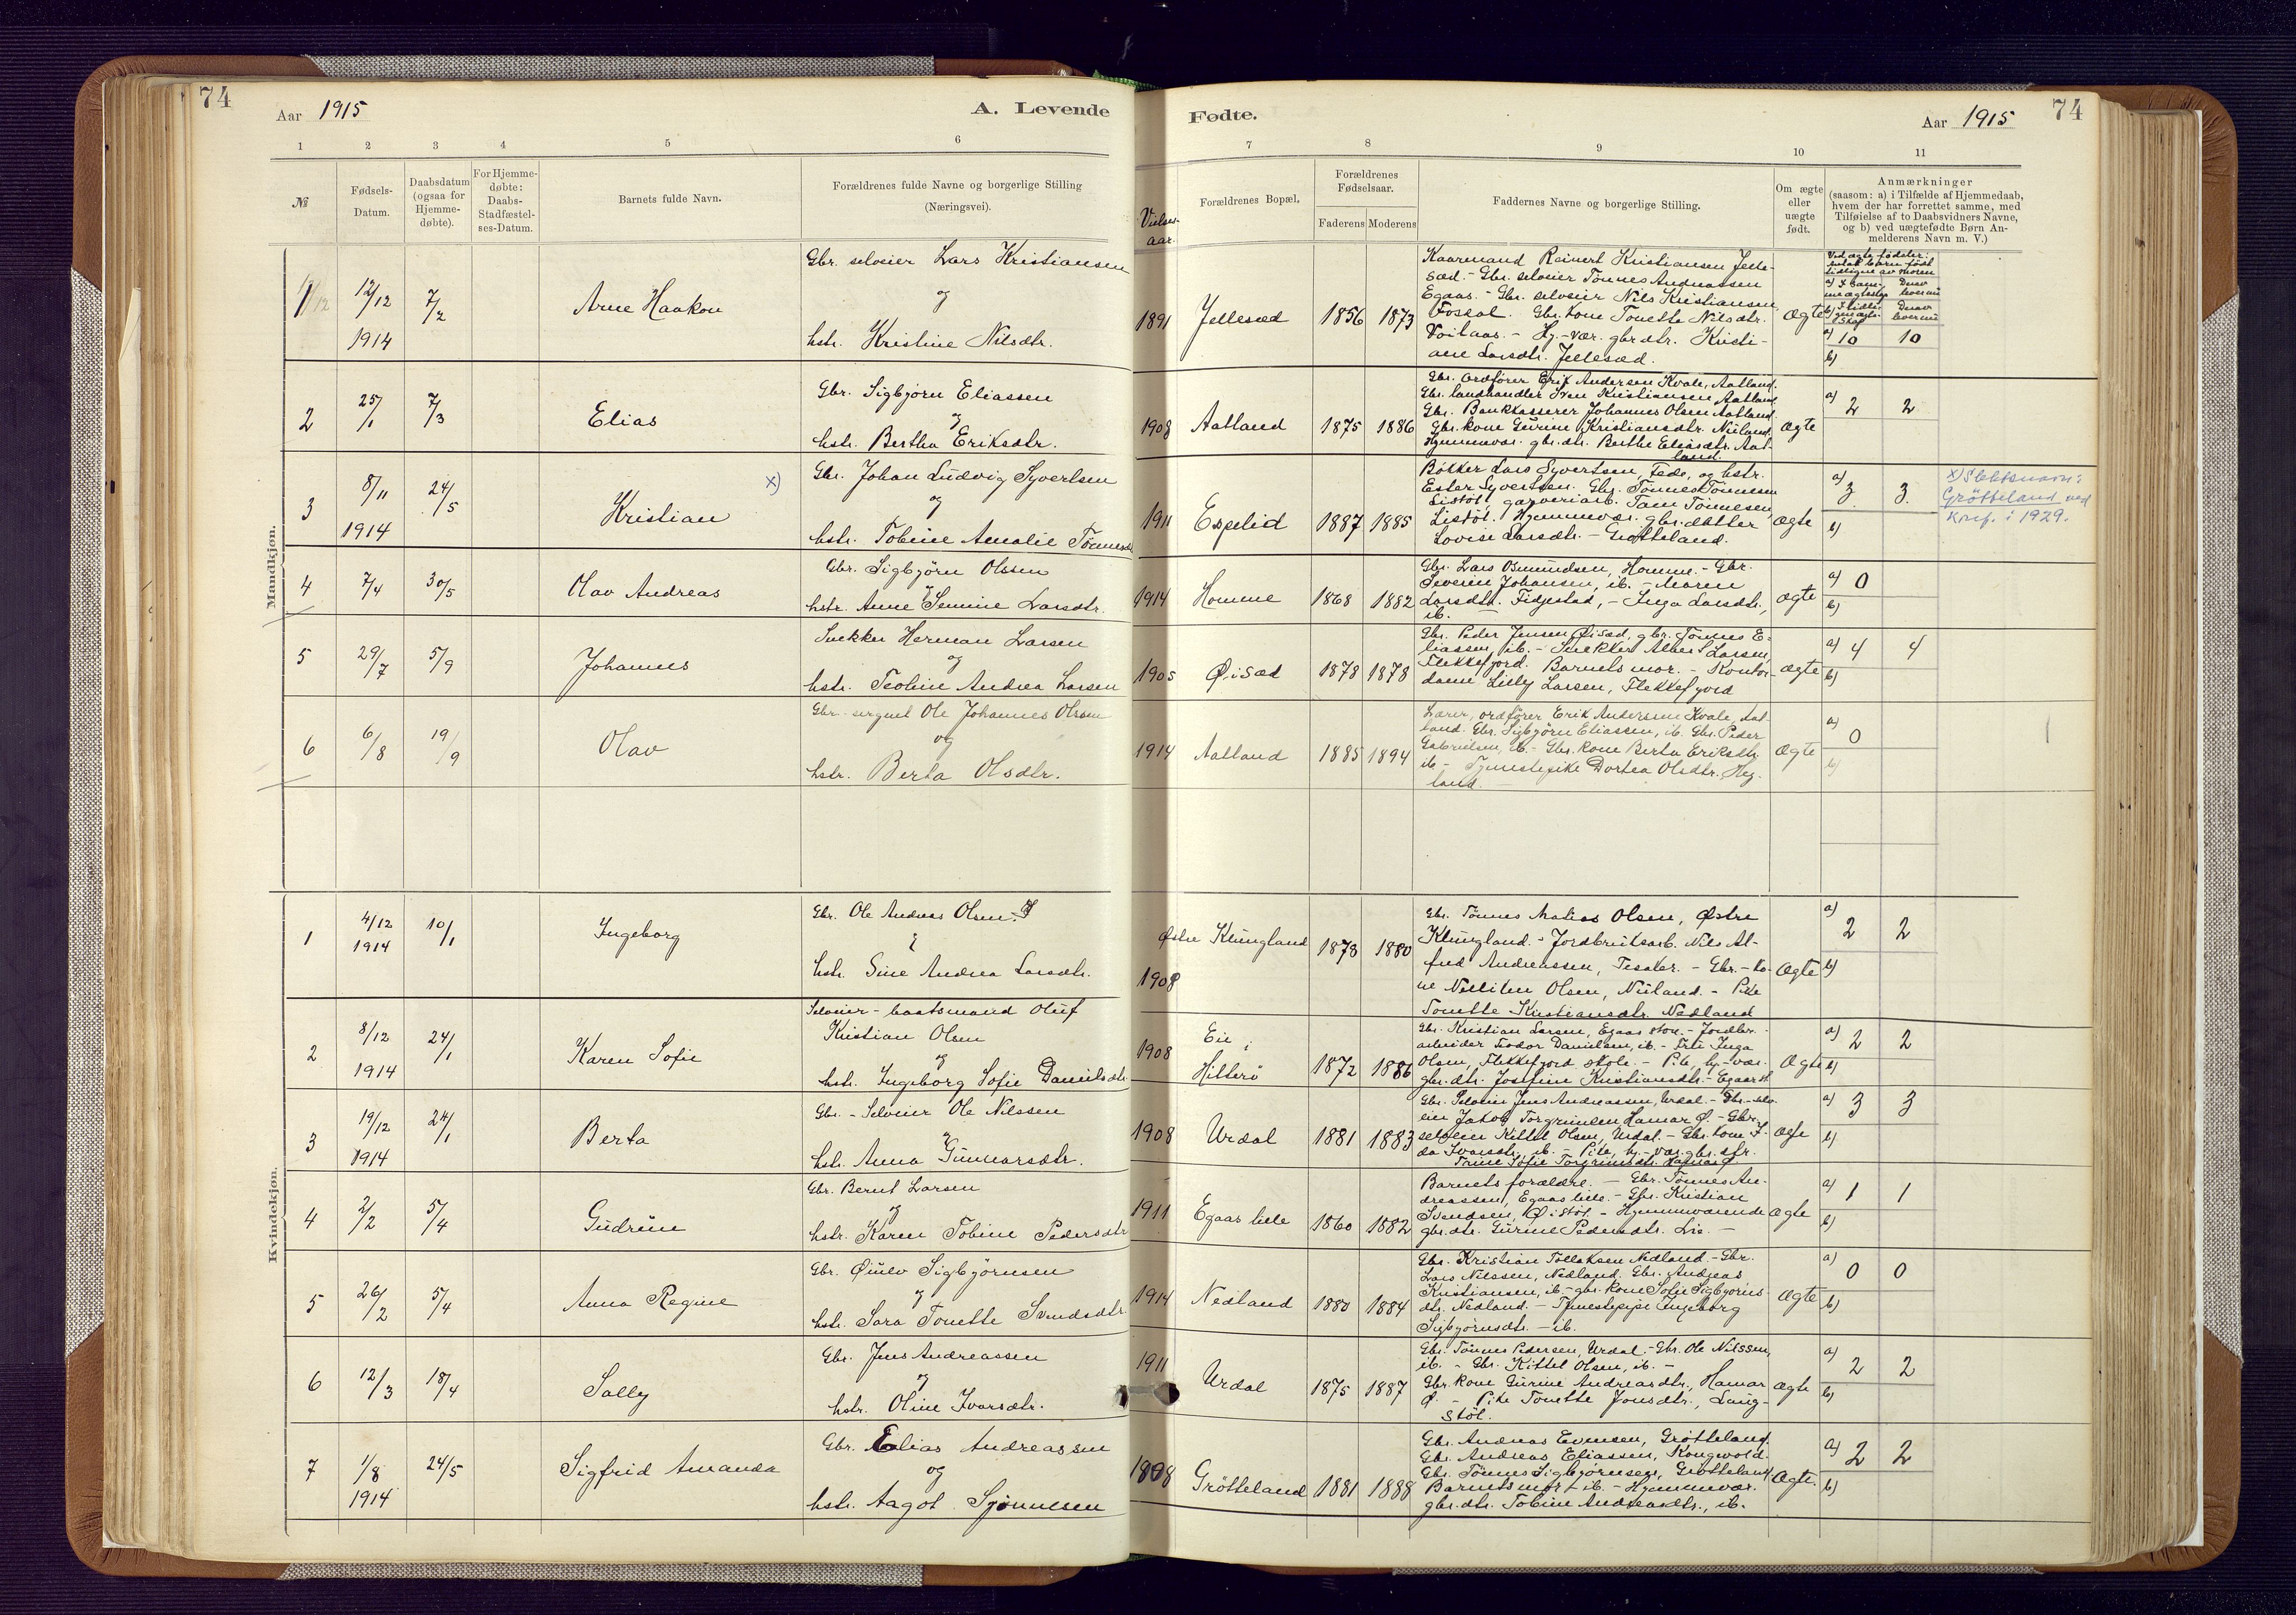 74
Aar 1915
A. Levende
1 2 3 4 5 6
№
Fødsels-Datum.
Daabsdatum (ogsaa for Hjemme-døbte).
For Hjemme-døbte: Daabs-Stadfæstel-ses-Datum.
Barnets fulde Navn.
Forældrenes fulde Navne og borgerlige Stilling
(Næringsvei).
Mandkjøn.
1 12/12 1914 7/2 Arne Haakon
Gbr. selveier Lars Kristiansen
og
hstr. Kristine Nilsdtr.
2 25/1 7/3 Elias
Gbr. Sigbjörn Eliassen
og
hstr. Bertha Eriksdtr.
3 8/11 1914 24/5 Kristian x)
Gbr. Johan Ludvig Syvertsen
og
hstr. Tobine Amalie Tönnesdtr
4 7/4 30/5 Olav Andreas
Gbr. Sigbjörn Olsen
hstr. Anne Semine Larsdtr.
5 29/7 5/9 Johannes
Snekker Herman Larsen
og
hstr. Teoline Andrea Larsen
6 6/8 19/9 Olav
Gbr. sergnt Ole Johannes Olsen
og
hstr. Berta Olsdtr.
Kvindekjøn.
1 4/12 1914 10/1 Ingeborg
Gbr. Ole Andreas Olsen
hstr. Sine Andrea Larsdtr.
2 8/12 1914 24/1 Karen Sofie
Selveier - baatsmand Oluf
Kristian Olsen
og
hstr. Ingeborg Sofie Danielsdtr.
3 19/12 1914 24/1 Berta
Gbr. - Selveier Ole Nilssen
hstr. Anna Gunnarsdtr.
4 2/2 5/4 Gudrun
Gbr. Bernt Larsen
og
hstr. Karen Tobine Pedersdtr
5 26/2 5/4 Anna Regine
Gbr. Öiulv Sigbjörnsen
og
hstr. Sara Tonette Svendsdtr
6 12/3 18/4 Solly
Gbr. Jens Andreassen
og
hstr. Oline Ivarsdtr.
7 1/8 1914 24/5 Sigfrid Amanda
Gbr. Elias Andreassen
og
hstr. Aagot Sjonnesen
Fødte.
Aar 1915
74
7 8 9 10 11
Vielses-aar.
Forældrenes Bopæl.
Forældrenes Fødselsaar.
Faderens Moderens
Faddernes Navne og borgerlige Stilling.
Om ægte eller uægte født.
Anmærkninger
(saasom: a) i Tilfælde af Hjemmedaab,
hvem der har forrettet samme, med
Tilføielse af to Daabsvidners Navne,
og b) ved uægtefødte Børn An-
melderens Navn m. V.)
1891 Jellesæd 1856 1873
Kaaremand Reinert Kristiansen Jelle-
sæd. - Gbr. selveier Tönnes Andreassen
Egaas. - Gbr. selveier Nils Kristiansen
Foskol. Gbr. kone Tonette Nilsdtr.
Voilaas. - Hj.-vær. gbr.dtr. Kristi-
ane Larsdtr. Jellesæd.
Ægte
a) 10 10
b)
1908 Aatland 1875 1886
Gbr. ordförer Erik Andersen Kvale, Aatland.
Gbr. landhandler Sven Kristiansen Aatland
Gbr. Bankkasserer Johannes Olsen Aatland.
Gbr. kone Gurine Kristiansdtr. Nuland.
Hjemmevær. gbr. dtr. Berthe Eliasdtr. Aat-
land.
Ægte
a) 2 2
1911 Espelid 1887 1885
Bökker Lars Syvertsen, Fede, og hstr.
Ester Syvertsen. Gbr. Tönnes Tönnesen
Listöl, garveriarb. Tom Tönnesen
Listöl. Hjemmevær. gbr. datter
Lovise Larsdtr. - Grötteland.
Ægte
a) 3. 3.
b)
x) Slektsnavn:
Grötteland ved
konf. i 1929.
1914 Homme 1868 1882
Gbr. Lars Osmundsen, Homme. - Gbr.
Severin Johansen, ib. - Maren
Larsdtr. Fidjestad, - Inga Larsdtr.,
ib.
ægte
a) 0
b)
1905 Øisæd 1878 1878
Gbr. Peder Jensen Øisæd, gbr. Tönnes E-
liassen, ib. - Snekker Albert Larsen,
Flekkefjord. Barnets mor. - Kontor-
dame Lilly Larsen, Flekkefjord
Ægte
a) 4 4
b)
1914 Aatland 1885 1894
Lærer, ordförer Erik Andersen Kvale, Aat-
land. Gbr. Sigbjörn Eliassen, ib. Gbr. Peder
Gabrielsen, ib. - Gbr. kone Berta Eriksdtr.
ib. - Tjenestepike Dortea Olsdtr. Heg-
land.
Ægte
a) 0
b)
1908 Østre Klungland 1878 1880
Gbr. Tönnes Matias Olsen, Østre
Klungland. - Jordbruksarb. Nils Al-
fred Andreassen, Tesaker. - Gbr. - ko-
ne Olsen, Nuland. - Pike
Tonette Kristiansdtr. Nedland
Ægte
a) 2 2
b)
1908 Eie i Hitterö 1872 1886
Gbr. Kristian Larsen, Egaas store. - Jordbr.-
arbeider Teodor Danielsen, ib. - Frk. Inga
Olsen, Flekkefjord skole. - Pike, hj.-vær.
gbr. dtr. Josefine Kristiansdtr. - Egaas st.
Ægte
a) 2 2
b)
1908 Urdal 1881 1883
Gbr. Selveier Jens Andreassen, Urdal. - Gbr.-selv-
eier Jakob Torgrimsen Hamar Ø. - Gbr.
selveier Kittel Olsen, Urdal. - Gbr. kone I-
da Ivarsdtr. ib. - Pike, hj.-vær. gbr. dtr.
Trine Sofie Torgrimsdtr. Hamar Ø
Ægte
a) 3 3
b)
1911 Egaas lille 1860 1882
Barnets forældre. - Gbr. Tönnes An-
dreassen, Egaas lille. - Gbr. Kristian
Svendsen, Øistöl. - Hjemmeværende
gbr. dtr. Gurine Pedersdtr. Lie. -
Ægte
a) 1 1
b)
1914 Nedland 1880 1884
Gbr. Kristian Tollaksen Nedland. - Gbr.
Lars Nilssen, Nedland. Gbr. Andreas
Kristiansen, ib. - gbr. kone Sofie Sigbjörns-
dtr. Nedland. - Tjenestepige Ingeborg
Sigbjörnsdtr. - ib.
Ægte
a) 0 0
b)
1911 Urdal 1875 1887
Gbr. Tönnes Pedersen, Urdal. - Gbr. Ole Nilssen,
ib. - Gbr. Kittel Olsen, ib. -
Gbr. kone Gurine Andreasdtr., Hamar
Ø. - Pike Tonette Jonsdtr., Lang-
stöl.
Ægte
a) 2 2
b)
1908 Grötteland 1881 1888
Gbr. Andreas Evensen, Grötteland,
Gbr. Andreas Eliassen, Kongevold.
Gbr. Tönnes Sigbjörnsen, Grötteland,
Barnets mor - ib. - Hjemmevær.
gbr. dtr. Tobine Andreasdtr., ib.
Ægte.
a) 2 2
b)